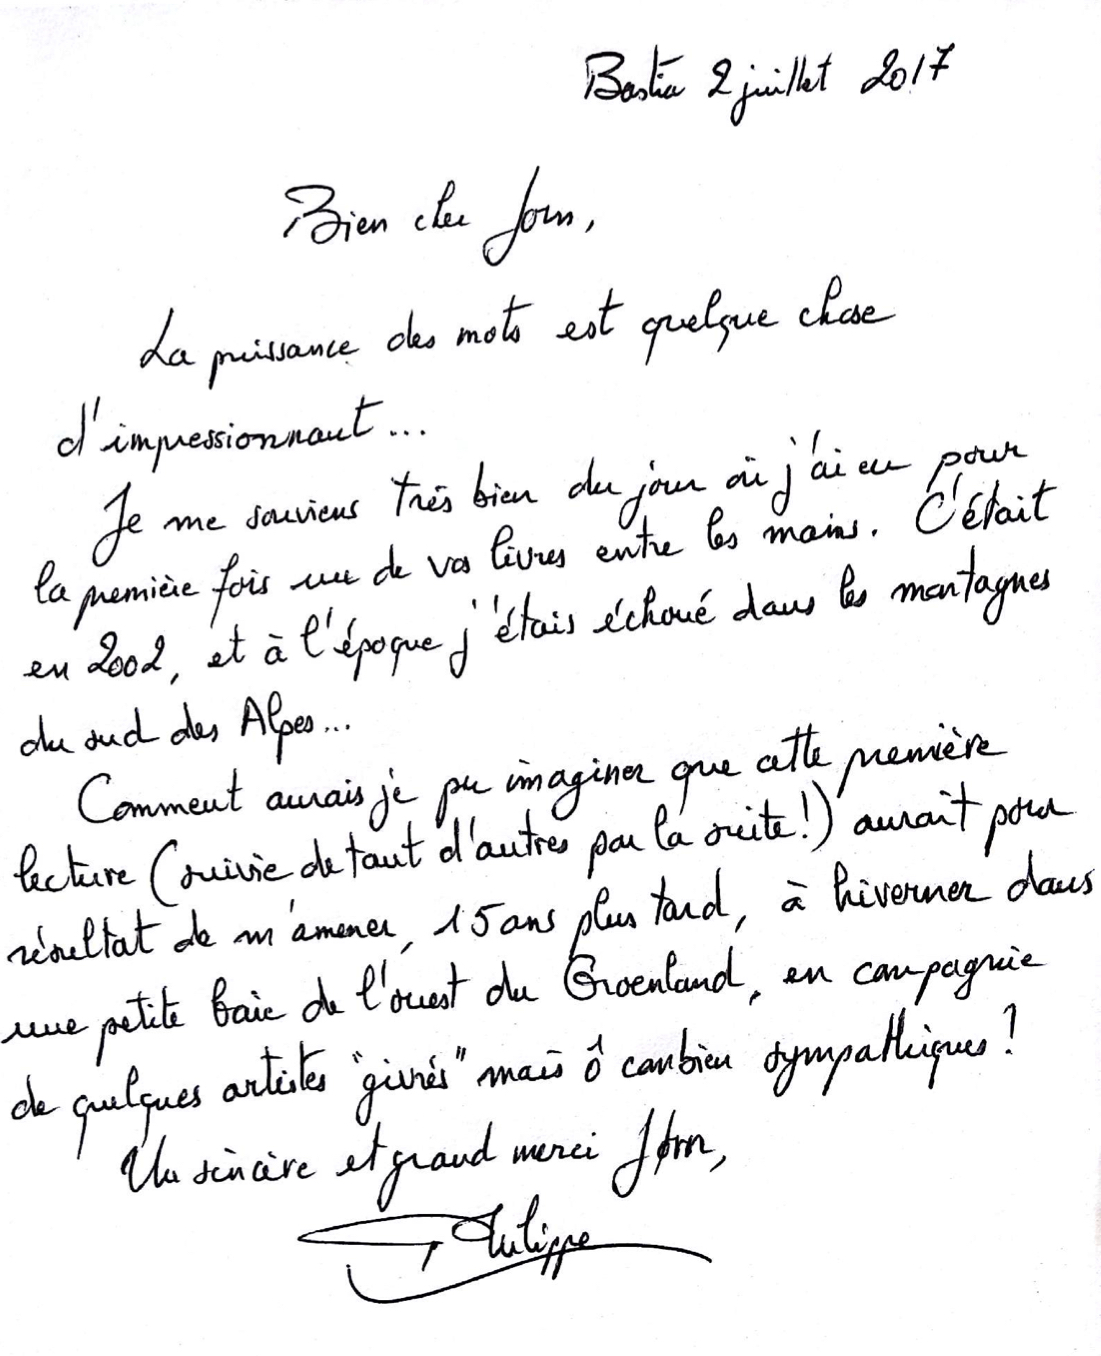 Bastia 2 juillet 2017
Bien cher Jorn,
La puissance des mots est quelque chose
d'impressionnant...
Je me souviens très bien du jour où j'ai eu pour
la première fois un de vos livres entre les mains. C'était
en 2002, et à l'époque j'étais échoué dans les montagnes
du sud des Alpes...
Comment aurais je pu imaginer que cette première
lecture (suivie de tant d'autres par la suite!) aurait pour
résultat de m'amener, 15 ans plus tard, à hiverner dans
une petite baie de l'ouest du Groenland, en compagnie
de quelques artistes "givrés" mais ô combien sympathiques !
Un sincère et grand merci Jørn,
Philippe